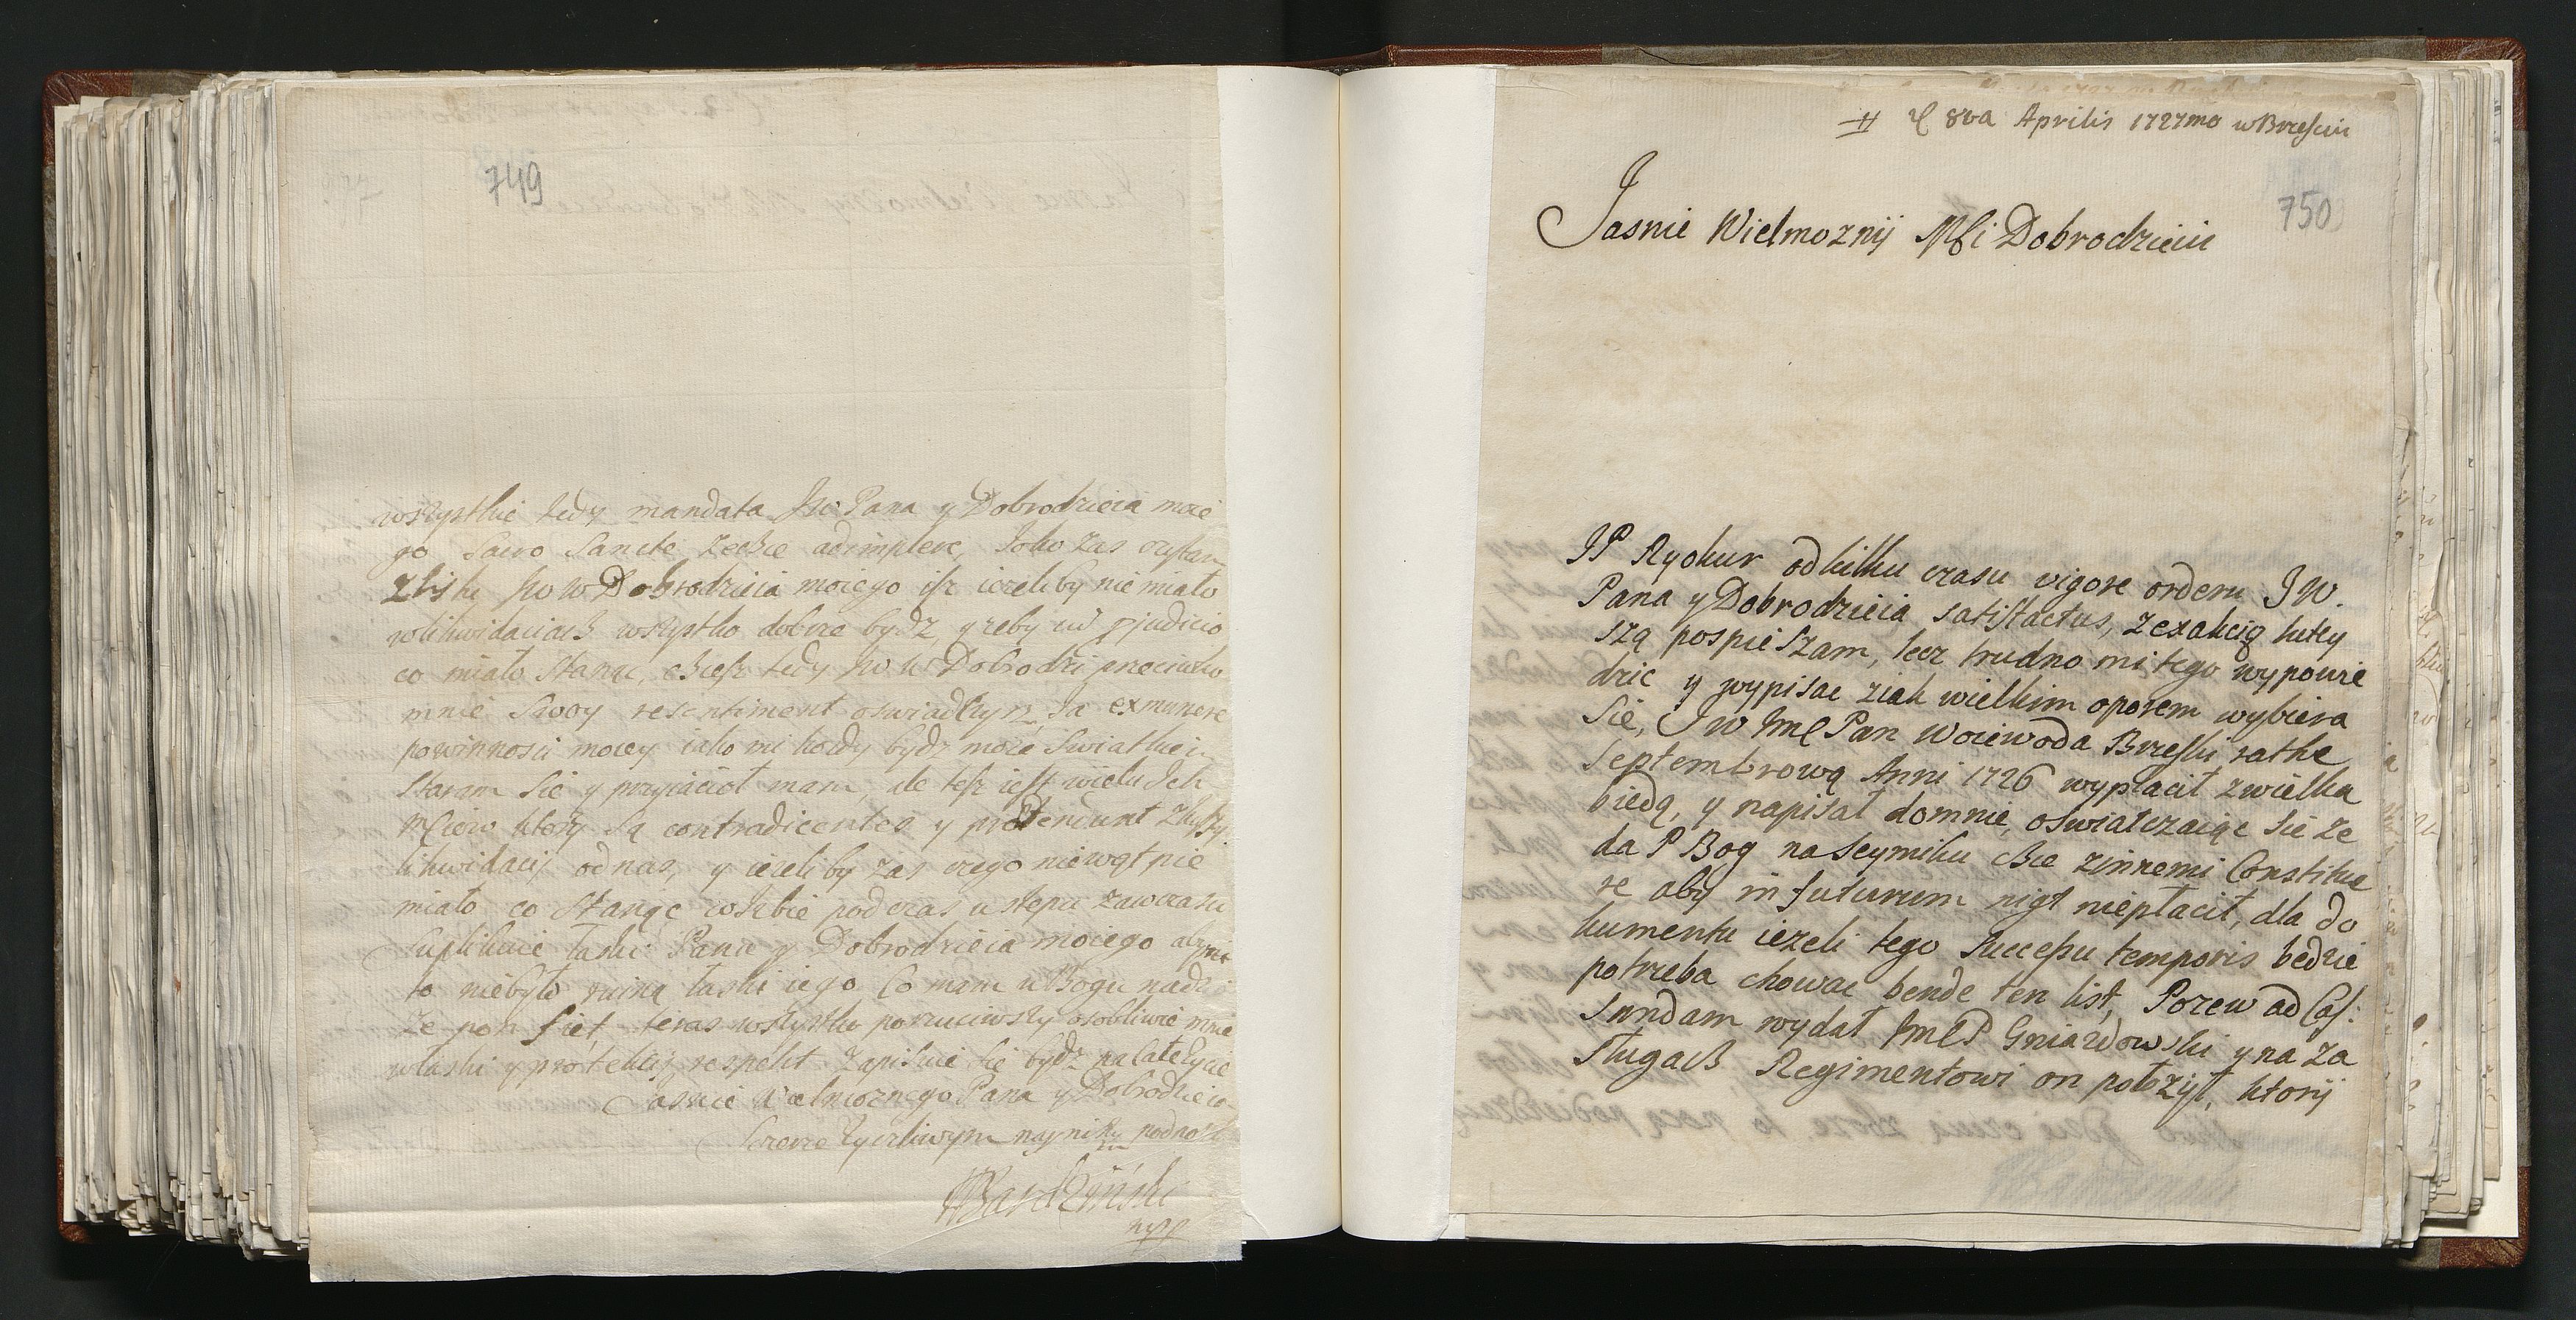 749
wszystkie tedy mandata Jw Pana y Dobrodzieia moie
go Sacro Sancte zechce adimplere,
JoW Dobrodzieia moiego isz ieżeliby nie miało
wlikwidaciach wszystko dobrze bydz, y żeby in pjudicio
co miało stanąc, chciesz tedy Jo W Dobrodzi przeciwko
mnie Swoy resentiment oswiadczyc, Ja exmunere
powinnosci moiey iako mi kożdy bydz może Swiatkiem
staram Sie y przyiacioł mam, ale tesz iest wielu Ich
Mciow ktorzy są contradicentes y prætendunt
likwidacij od nas, y ieżeliby zas czego niewątpie
miało co stanąc wIzbie podczas ustępu zawczasu
Suplikuie łaski Pana y Dobrodzieia moiego aby mi
to niebyło ruiną łaski iego Co mam w Bogu nadzi
że non fiet, teras wszystko porzuciwszy osobliwie mnie
właski y protekcij respekt zapisuie sie bydz nalatezycie
Jasnie Wielmoznego Pana y Dobrodzieia
Szczerze życzliwym nayniższym podnosz
Bardziński
mpp
# d 8va Aprilis 1727mo w Brzesciu
750
Jasnie Wielmoznij Mści Dobrodzieiu
JP Rychur odkilku czasu vigore orderu J W.
Pana y Dobrodzieia satisfactus, zexakcią tutey
szą pospieszam, lecz trudno mi tego wypowie
dzic y wypisac ziak wielkim oporem wybiera
Sie, J W Jmc Pan Woiewoda Brzeski rathe
Septembrową Anni 1726 wypłacił zwielka
biedą, y napisał domnie, oswiatczaiąc sie że
da P Bog na Seymiku chce zinnemi Constitue
re aby in futurum nigt niepłacił, dla do
kumentu ieżeli tego Successu temporis bedzie
potrzeba chowac bende ten list, Pozew ad Cas:
sundam wydał Jmc P Gniazdowski y na za
sługach Regimentowi on położył, ktorij